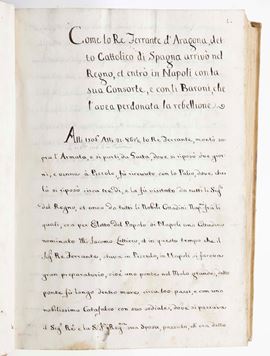 Come lo Re Ferrante d'Aragona, det
to Cattolico di Spagna arrivò nel
Regno, et entrò in Napoli con la
sua Consorte, e con li Baroni, che
l'avea perdonata la rebellione
Alli 1506 Alli 21 lo Re Ferrante, montò so
pra l'Armata, e si partì da Gaeta, dove si riposò due gior
ni, e venne à Pozzolo, fù ricevuto con lo Palio, dove che
là si riposò circa tre dì, e là fù visitato da tutti li Sig.ri
del Regno, et anco da tutti li Nobili Cittadini fra li
quali, era per Eletto del Popolo di Napoli uno Cittadino
nominato Jacomo et in questo tempo che il
Re Ferrante, stava in Pozzolo, in Napoli si faceva
gran preparatorio, cioè uno ponte nel Molo grande,
ponte fù longo dentro mare, circa 100 passi, e con uno
nobilissimo Catafalco con sue sediale, dove si posava
il Sig.r Rè e la Sig.ra Reg.na sua sposa, parato, et era dello